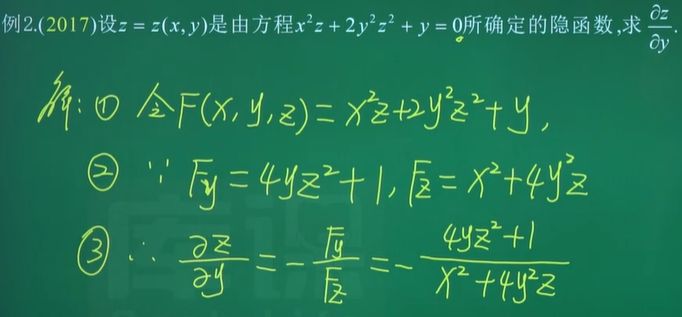 例2.(2017)设z = z(x, y)是由方程x²z + 2y²z² + y = 0所确定的隐函数,求 ∂z/∂y.
解: ① 令F(x, y, z) = x²z+2y²z²+y,
② ∵ Fy = 4yz²+1, Fz = x²+4y²z
③ ∴ ∂z/∂y = - Fy/Fz = - (4yz²+1)/(x²+4y²z)